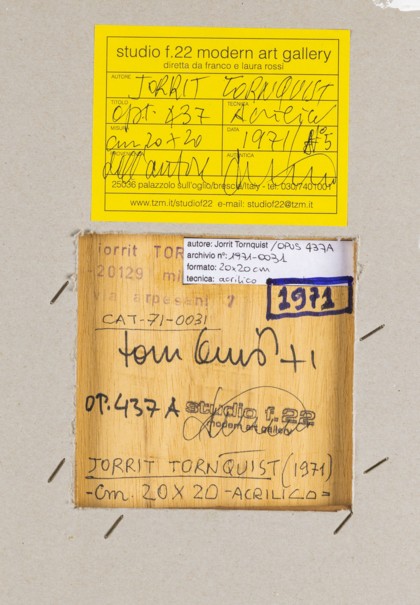 studio f.22 modern art gallery
diretta da franco e laura rossi
AUTORE JORRIT TORNQUIST
TITOLO opt. 437 TECNICA Acrilico
MISURE cm 20 x 20 DATA 1971/
dell'autore AUTENTICA
25036 palazzolo sull'oglio/brescia/italy - tel. 030/7401001
www.tzm.it/studiof22 e-mail: studiof22@tzm.it
autore: Jorrit Tornquist / OPUS 437A
archivio n°: 1971-0031
formato: 20x20 cm
tecnica: acrilico
jorrit TOR
20129 mi
via arpesani 7
1971
CAT-71-0031
OP. 437 A
studio f.22
modern art gallery
JORRIT TORNQUIST (1971)
-cm. 20 X 20 -ACRILICO-